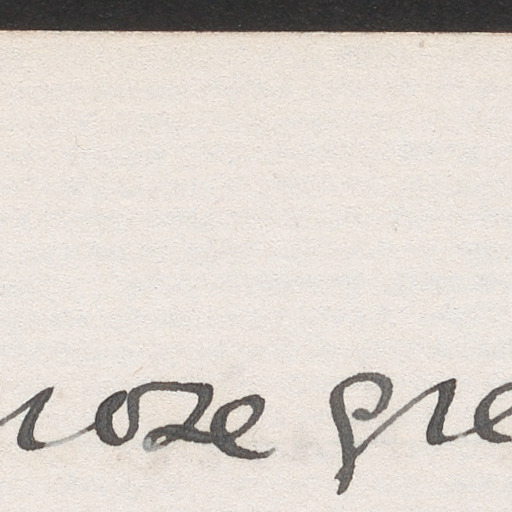 roze gre